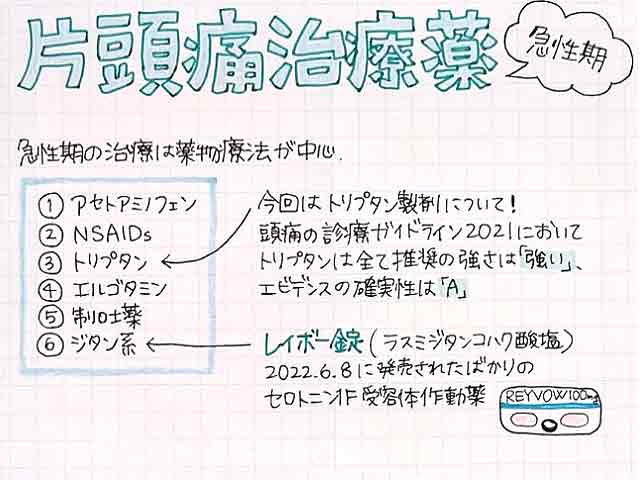 片頭痛治療薬
急性期
急性期の治療は薬物療法が中心.
① アセトアミノフェン
② NSAIDs
③ トリプタン
④ エルゴタミン
⑤ 制吐薬
⑥ ジタン系
今回はトリプタン製剤について!
頭痛の診療ガイドライン2021において
トリプタンは全て推奨の強さは「強い」、
エビデンスの確実性は「A」
レイボー錠(ラスミジタンコハク酸塩)
2022.6.8に発売されたばかりの
セロトニン1F受容体作動薬
REYVOW100mg